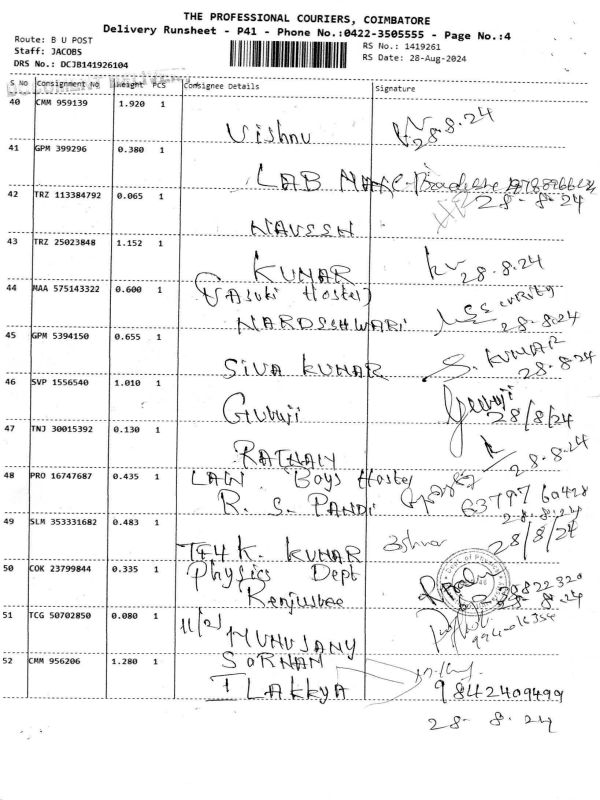 THE PROFESSIONAL COURIERS, COIMBATORE
Delivery Runsheet - P41 - Phone No.:0422-3505555 - Page No.:4
Route: B U POST
RS No.: 1419261
Staff: JACOBS
RS Date: 28-Aug-2024
DRS No.: DCJB141926104
S No Consignment No Weight PCS Consignee Details Signature
40 CMM 959139 1.920 1
Vishnu 28.8.24
41 GPM 399296 0.380 1
LAB
42 TRZ 113384792 0.065 1
28-8-24
NAVSSN
43 TRZ 25023848 1.152 1
KUNAR kv 28.8.24
44 MAA 575143322 0.600 1
(Vasuki Hostel)
NARDSHWARI 28-8-24
45 GPM 5394150 0.655 1
SIVA KUMAR S. KUMAR
28-8-24
46 SVP 1556540 1.010 1
Guruji Guruji
28/8/24
47 TNJ 30015392 0.130 1
28-8-24
48 PRO 16747687 0.435 1
LAW Boys Hostel
R. S. PANDI
28-8-24
49 SLM 353331682 0.483 1
28/8/24
T44 K. KUNAR
50 COK 23799844 0.335 1
Physics Dept
28-8-24
51 TCG 50702850 0.080 1
11/2)
MUNUSANY
52 CMM 956206 1.280 1
SORNAM
ILAKKYA 9842409499
28-8-24